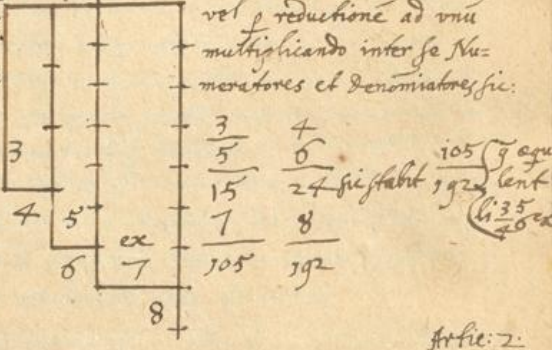 vel p reductionē ad vnū
multiplicando inter se Nu=
meratores et Denōmiatores sic:
3 4
5 6
15 24 sic stabit 105 q̄ equ
192 lent
7 8
li 3 5
4 6 ex
105 192
3
4 5 ex
6 7
8
Artic: 2